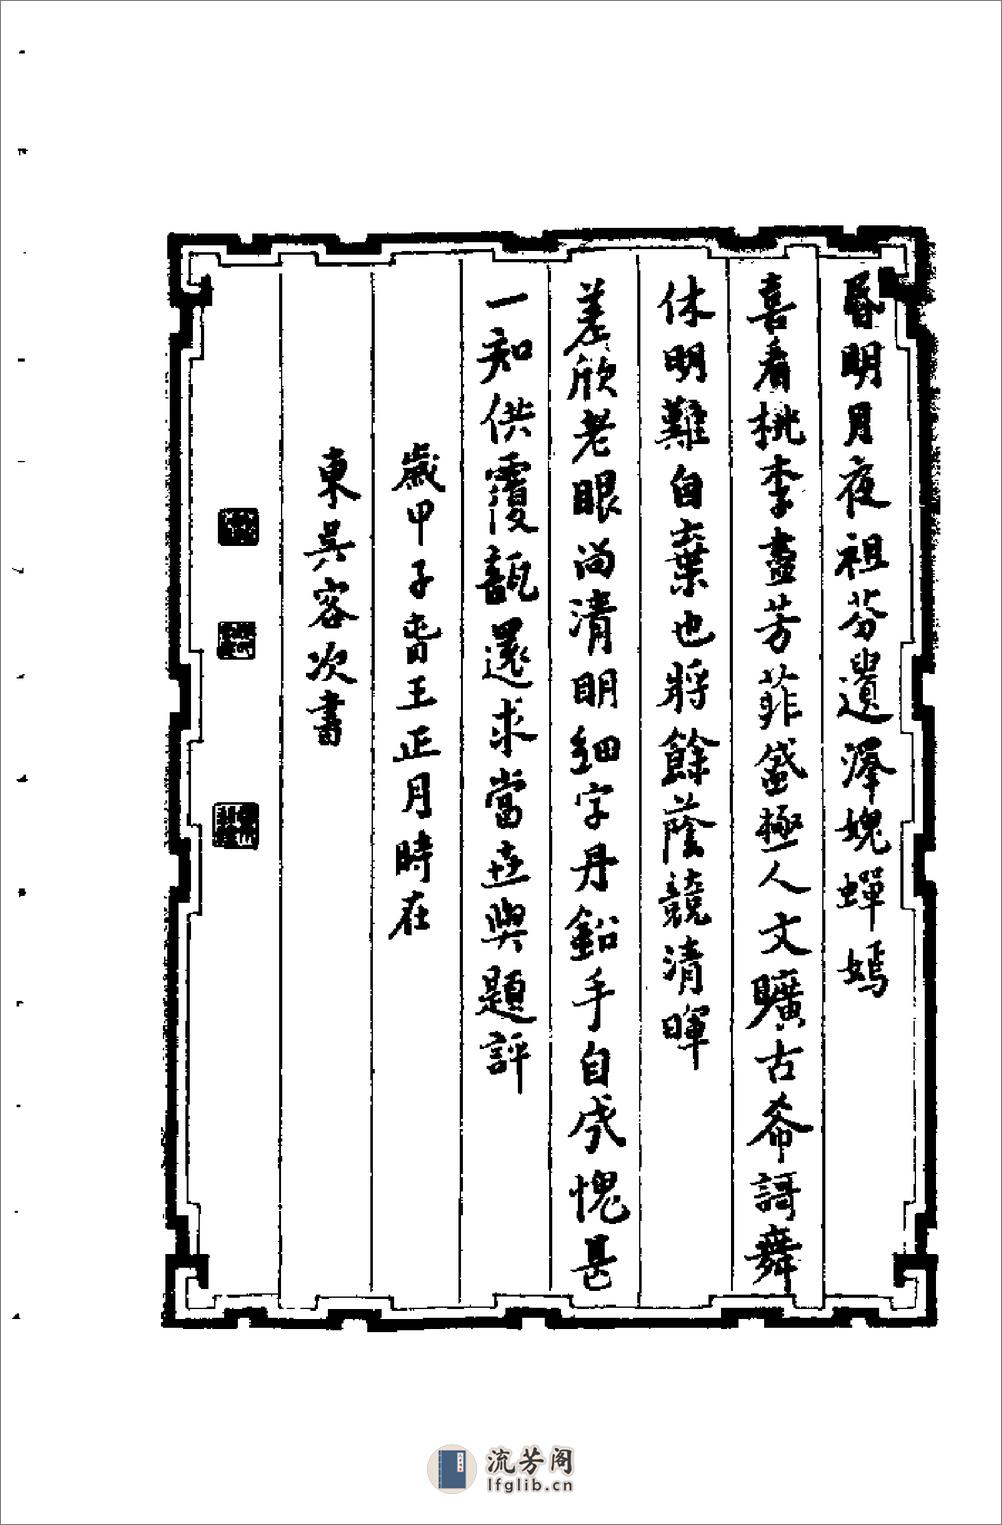 昏明月夜祖芬遺澤媿蟬嫣
喜看桃李盡芳菲盛極人文曠古希謌舞
休明難自棄也將餘蔭競清暉
差欣老眼尚清明細字丹鉛手自成愧甚
一知供覆瓿還求當世與題評
歲甲子春王正月時在
東吳客次書
流芳阁
lfglib.cn